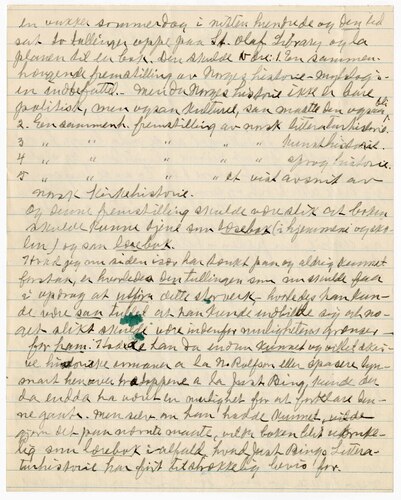 en vakker sommerdag i nitten hundrede og den tid
sat to tullinger oppe paa St. Olaf Library og la
planen til en bok. Den skulde være: 1. En sammen-
hængende fremstilling av Norges historie
indbefattet. Men da Norges historie ikke er bare
politisk, men ogsaa kulturel, saa maatte den ogsaa bli
2. En samment. fremstilling av norsk litteraturhistorie.
3 " " " " kunsthistorie.
4 " " " " sproghistorie.
5 " " " et vist avsnit av
norsk kirkehistorie.
Og denne fremstilling skulde være slik at boken
skulde kunne tjene som læsebok (i hjemmene og sko-
len) og som lærebok.
Hvad jeg nu siden især har tænkt paa og aldrig kunnet
forstaa, er hvorledes den tullingen som nu skulde faa
i opdrag at utføre dette storverk hvorledes han kun-
de være saa tullet at han kunde indbilde sig at no-
get slikt skulde være indenfor mulighetens grænser
for ham. Hadde han da endda kunnet og villet skri-
ve historiske romaner a la N. Rolfsen eller
henover trappene a la Just Bing, kunde der
da endda ha været en mulighet for at
Men selv om han hadde kunnet, vilde
gjøre det paa nævnte maate, vilde boken blit ubruke-
lig som lærebok ialfald, hvad Just Bings Littera-
turhistorie har git tilstrækkelig bevis for.